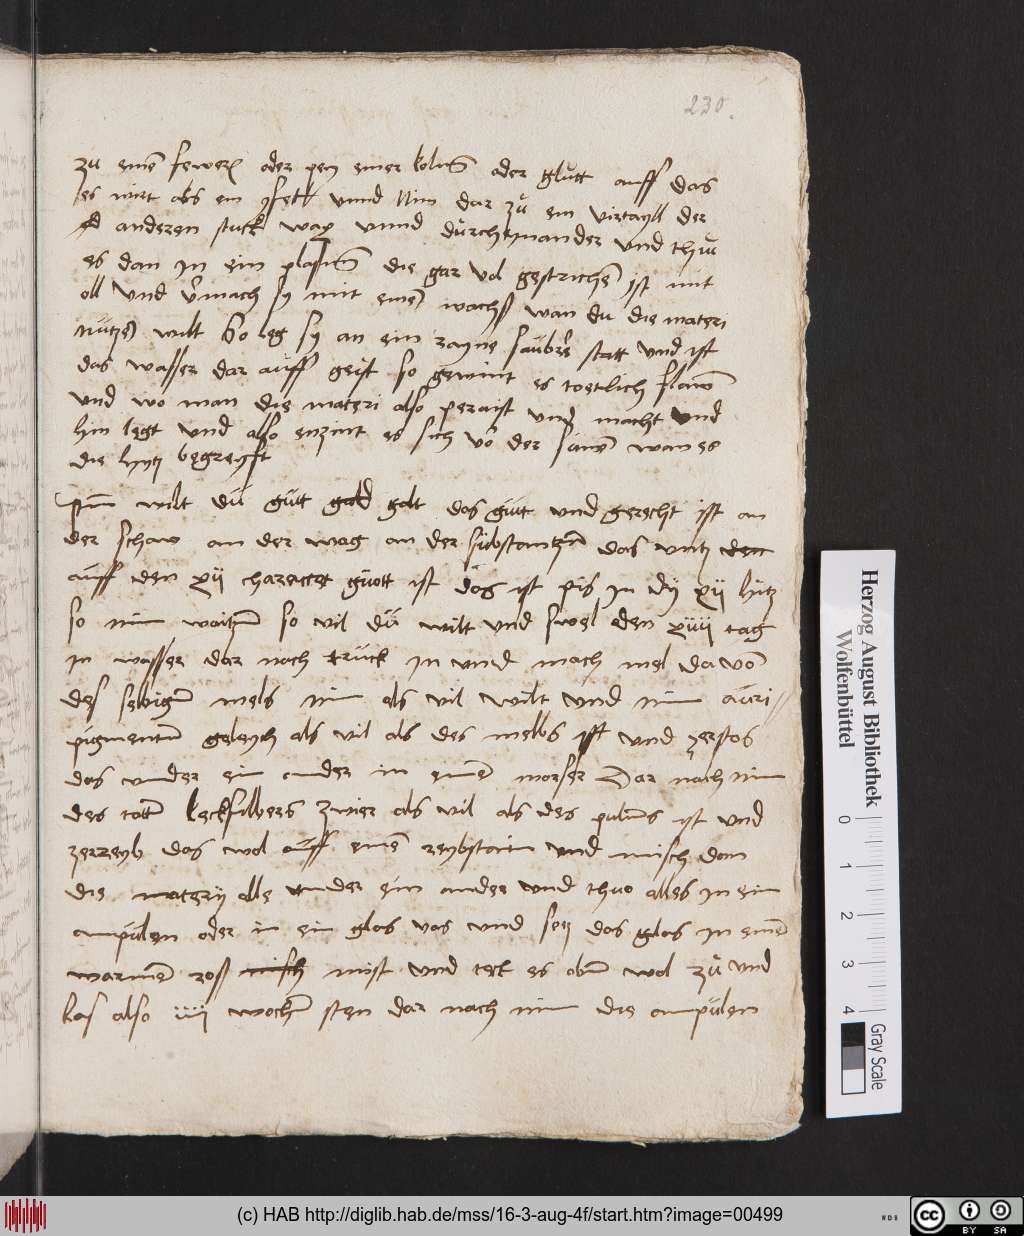 230.
zu einē fewer oder pey einer kolnē oder glutt auff das
es wirt als ein yfell unnd Nim dar zu ein virtayll der
anderen stuck wax unnd durcheynander und thuu
es dan in ein plasnē die gar vol gestrichē ist mit
oll und vmach sy mit einē wachß wan du die materi
nutzē wilt So leg sy an ein rayne saubre statt und ist
das wasser dar auff geist so gewint es toetlich flamē
und wo man die materi also peraist und macht und
hin legt und also enzint es sich vō der sunē wan es
die hytz begreyfft
wilt du gutt gold golt das gutt und gerecht ist an
der schaw an der wag an der substantzen das untz den
auff den xij harattt guott ist das ist pis in dy xij hitz
so nim waitzen so vil du wilt und swel den xiiij tag
in wasser dar nach truck in und mach mel da vō
des selbigen mels nim als vil wilt und nim auri-
pigmentum geleych als vil als des melbs ist und zerstos
das under ein ander in einē morser Dar nach nim
des kecksilbers zwier als vil als des puluers ist und
zerreyb das wol auff einē reybstain und misch dan
die matery alle under ein ander und thuo alles in ein
ampulen oder in ein glas vas und setz das glas in einē
warmē roß misch mist und teck es obn wol zu und
las also iiij wochen sten dar nach nim die ampulen
Herzog August Bibliothek
Wolfenbüttel
0 1 2 3 4
Gray Scale
(c) HAB http://diglib.hab.de/mss/16-3-aug-4f/start.htm?image=00499
cc BY SA